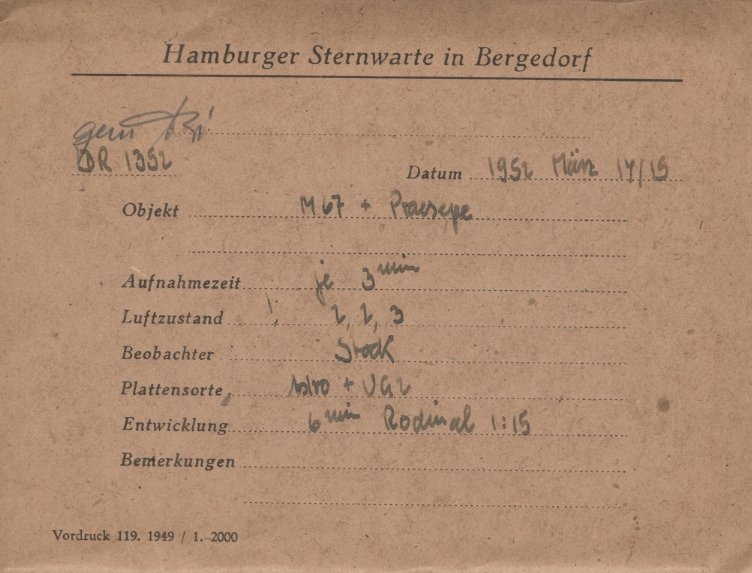 Hamburger Sternwarte in Bergedorf
DR 1352
Datum 1952 März 14/15
Objekt M 67 + Praesepe
Aufnahmezeit je 3 min
Luftzustand 2, 2, 3
Beobachter Stock
Plattensorte Astro + UG2
Entwicklung 6 min Rodinal 1:15
Bemerkungen
Vordruck 119. 1949 / 1.-2000